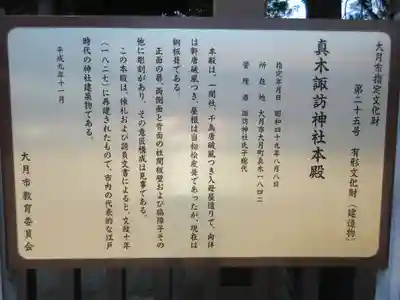 大月市指定文化財
第二十五号 有形文化財(建造物)
真木諏訪神社本殿
指定年月日 昭和四十九年八月八日
所在地 大月市大月町真木一八四二
管理者 諏訪神社氏子総代
本殿は、一間社、千鳥唐破風つき入母屋造りで、向拝
は軒唐破風つき、屋根は当初桧皮葺であったが、現在は
銅板葺である。
正面の扉、両側面と背面の柱間板壁および脇障子その
他に彫刻があり、その意匠構成は見事である。
この本殿は、棟札および請負文書によると、文政十年
(一八二七)に再建されたもので、市内の代表的な江戸
時代の神社建築物である。
平成九年十一月
大月市教育委員会